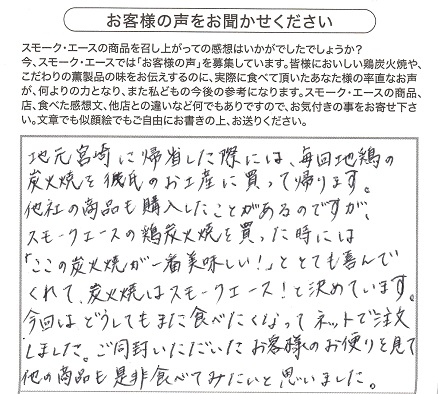 お客様の声をお聞かせください
スモーク・エースの商品を召し上がっての感想はいかがでしたでしょうか?
今、スモーク・エースでは「お客様の声」を募集しています。皆様においしい鶏炭火焼や、
こだわりの薫製品の味をお伝えするのに、実際に食べて頂いたあなた様の率直なお声
が、何よりの力となり、また私どもの今後の参考になります。スモーク・エースの商品、
店、食べた感想文、他店との違いなど何でもありですので、お気付きの事をお寄せ下さ
い。文章でも似顔絵でもご自由にお書きの上、お送りください。
地元宮崎に帰省した際には、毎回地鶏の
炭火焼を彼氏のお土産に買って帰ります。
他社の商品も購入したことがあるのですが、
スモークエースの鶏炭火焼を買った時には
「ここの炭火焼が一番美味しい!」ととても喜んで
くれて、炭火焼はスモークエース!と決めています。
今回はどうしてもまた食べたくなってネットで注文
しました。ご同封いただいたお客様のお便りを見て
他の商品も是非食べてみたいと思いました。